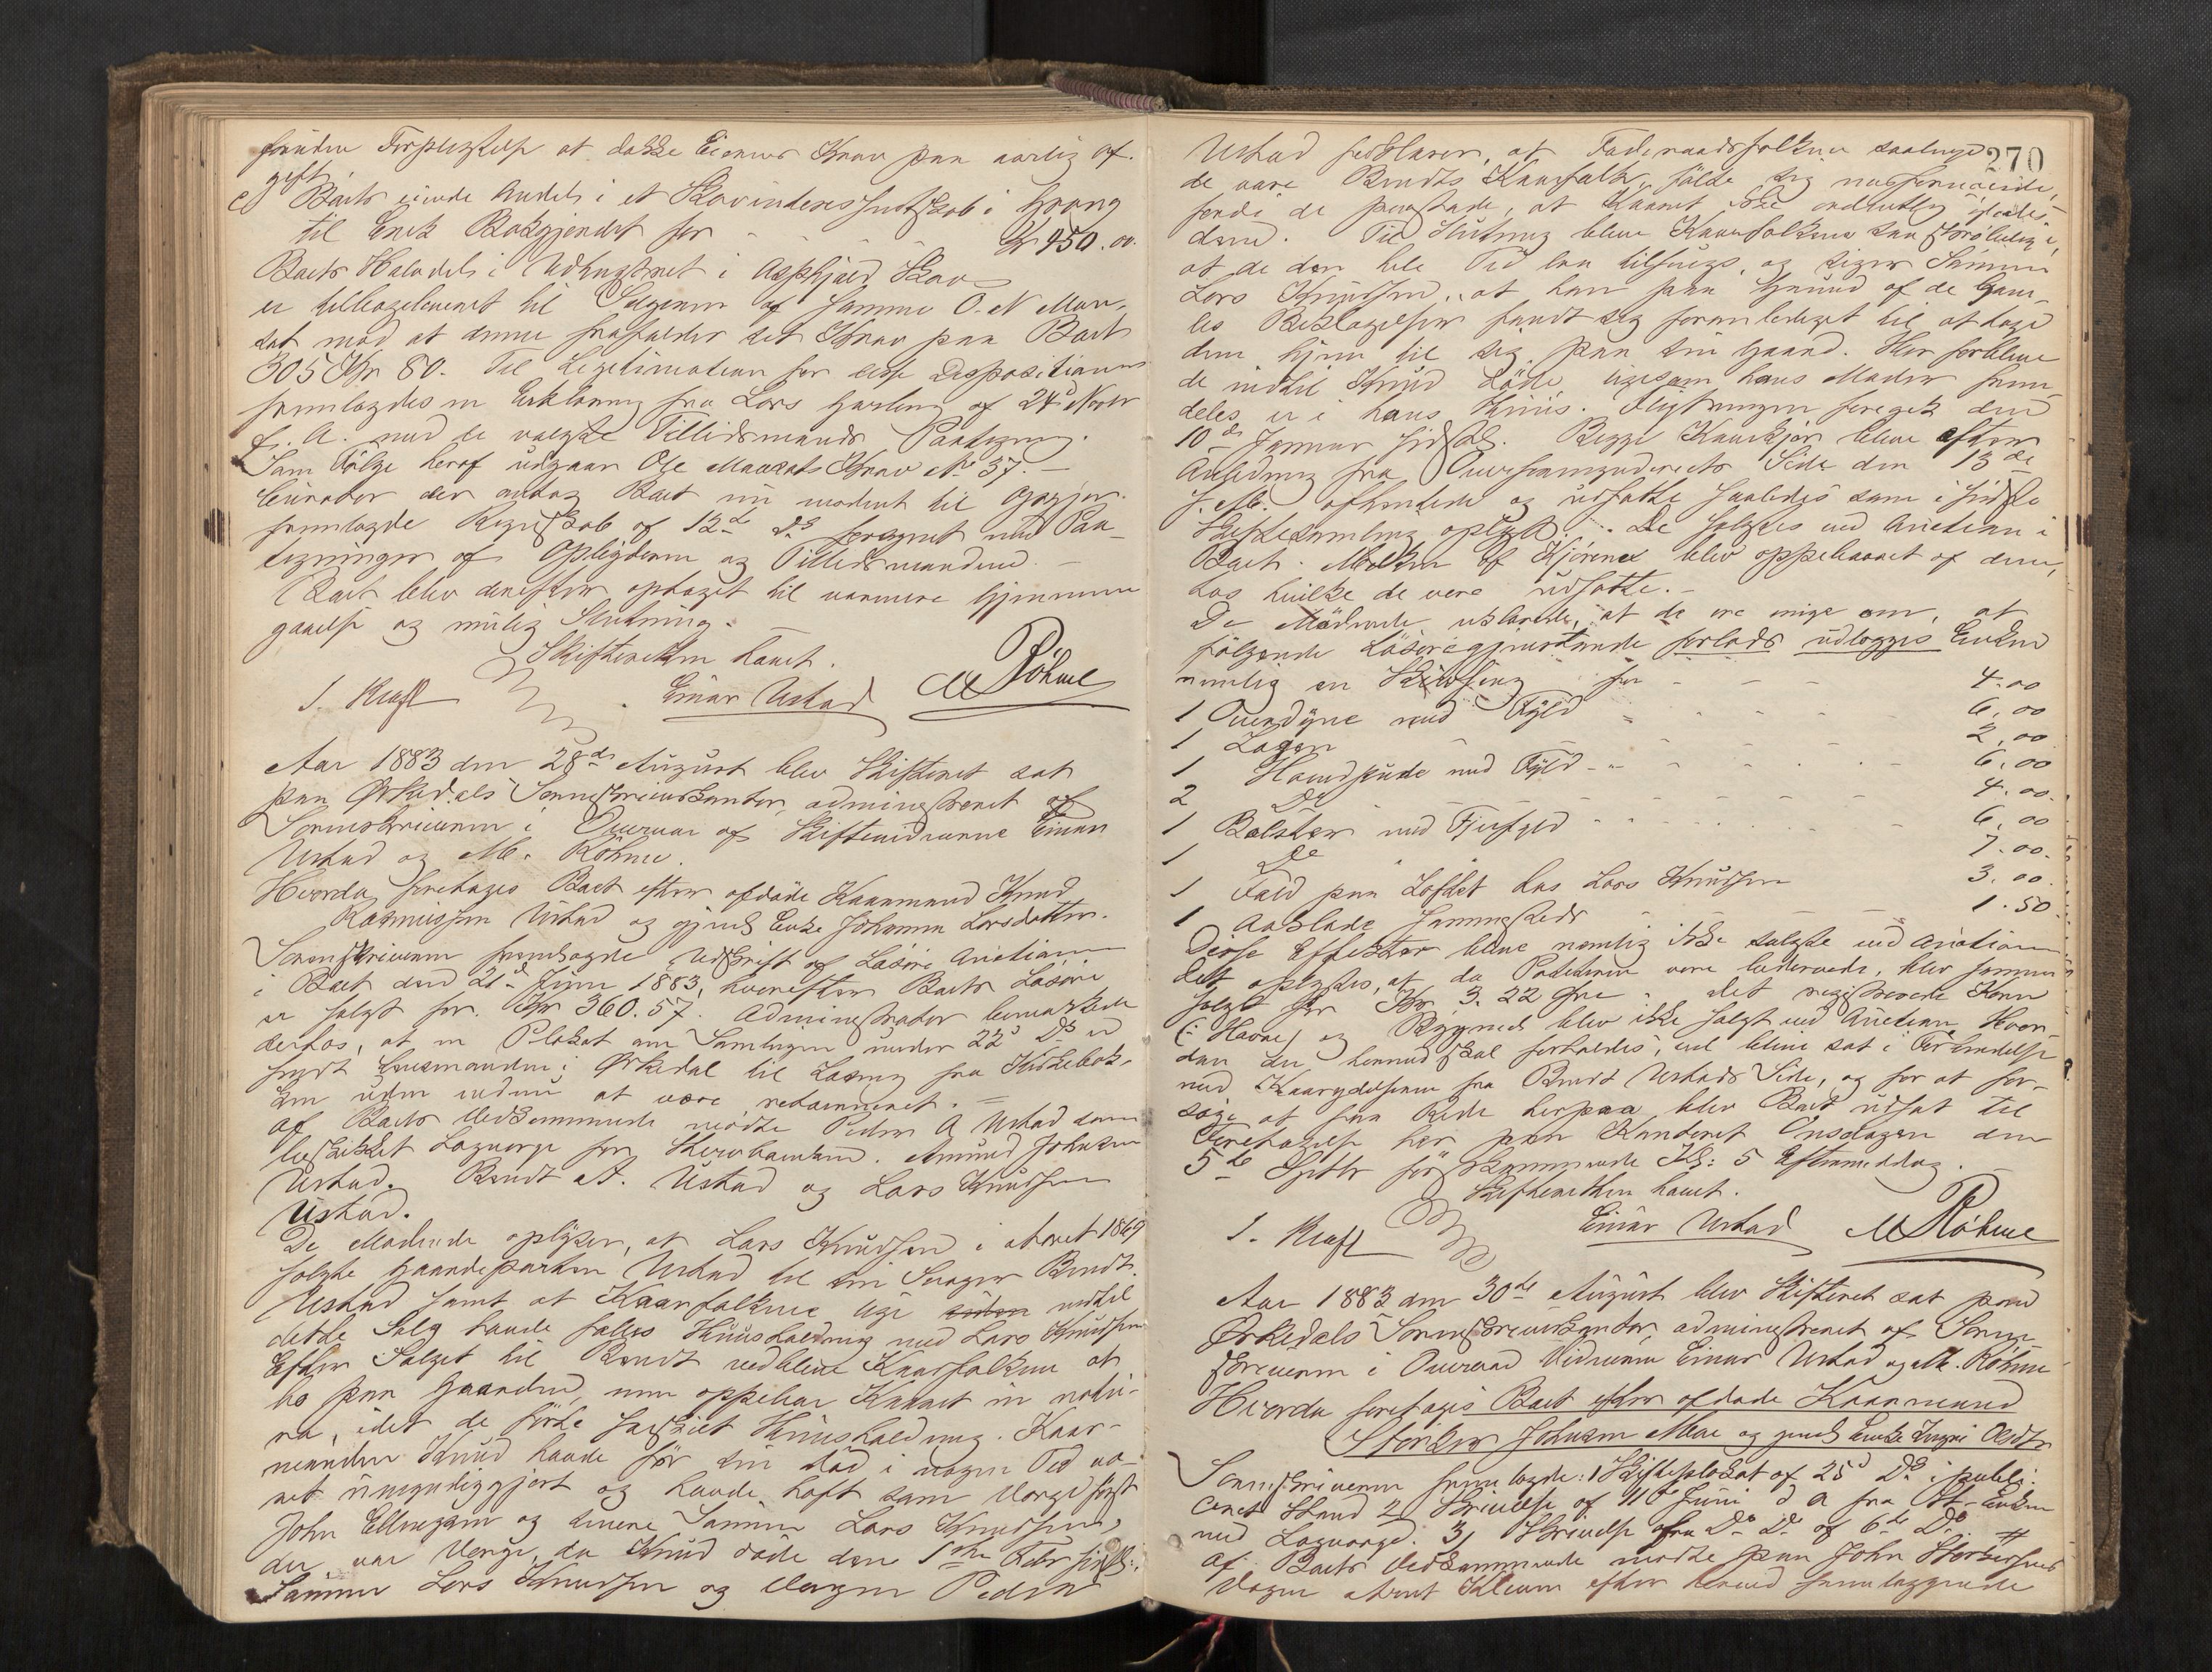 foruden Forpligtelse at dække Eierens Krav paa aarlig af-
gift
c) Boets eiende Andel i et Skovinteressentskab i Grong
til Erik Bakgjendet for - - - - Kr 450.00.
Boets Halvdel i Udhugstret i Aspkjæld Skov
er tilbagelevert til Sælgeren af samme O. N. Mau-
sat mod at denne frafalder sit Krav paa Boet
305 Kr 80. Til Legitimation for disse Dispositioner
fremlagdes en Erklæring fra Lars Garberg af 24d Novbr
f. A. med de valgte Tillidsmænds Paategning.
Som Følge heraf udgaar Ole Mausats Krav No 37. -
Curator der antog Boet nu modent til Opgjør
fremlagde Regnskab af 12te Ds forsynet med Paa-
tegninger af Opsigteren og Tillidsmændene. -
Boet blev derefter optaget til nærmere Gjennem-
gaaelse og mulig Slutning.
Skifteretten hævet.
J. Kraft Einar Ustad M Röhme
Aar 1883 den 28de August blev Skifteret sat
paa Ørkedals Sorenskriverkontor, administreret af
Sorenskriveren i Overvær af Skiftevidnerne Einar
Ustad og M. Röhme.
Hvorda foretages Boet efter afdøde Kaarmand Knud
Rasmussen Ustad og gjenl. Enke Johanna Larsdatter.
Sorenskriveren fremlagde Udskrift af Løsøre Auction
i Boet den 21de Juni 1883, hvorefter Boets Løsøre
er solgt for Kr 360.57. Administrator bemærkede
derhos, at en Plakat om Samlingen under 22d Ds er
sendt Lensmanden i Ørkedal til Læsning fra Kirkebak-
ken uden endnu at være returneret. -
Af Boets Vedkommende mødte Peder A Ustad som
beskikket Laugværge for Sterbboenken. Amund Johnsen
Ustad. Bendt A. Ustad og Lars Knudsen
Ustad.
De Mødende oplyser, at Lars Knudsen i Aaret 1869
solgte Gaardeparten Ustad til sin Svoger Bendt
Ustad samt at Kaarfolkene lige siden indtil
dette Salg havde fælles Huusholdning med Lars Knudsen
Efter Salget til Bendt vedbleve Kaarfolkene at
bo paa Gaarden, men oppebar Kaaret in natu-
ra, idet de førte særskilt Huusholdning. Kaar-
manden Knud havde før sin Død i nogen Tid væ-
ret umyndiggjort og havde haft som Værge først
John Ellingsen og senere Sønnen Lars Knudsen,
der var Værge, da Knud døde den 1ste Febr sidstl.
Sønnen Lars Knudsen og Værgen Peder
270
Ustad forklarer, at Føderaadsfolkene saalænge
de vare Bendts Kaarfolk, følte sig misfornøiede,
fordi de paastode, at Kaaret ikke ordentlig ydedes
dem. Til Slutning bleve Kaarfolkene saa skrøbelige,
at de den hele Tid laa tilsengs, og siger Sønnen
Lars Knudsen, at han paa Grund af de Gam-
les Beklagelser fandt sig foranlediget til at tage
dem hjem til sig paa sin Gaard. Her forbleve
de indtil Knud døde, ligesom hans Moder frem-
deles er i hans Huus. Flytningen foregik den
10de Januar sidstl. Begge Kaarkjør bleve efter
Anledning fra Overformynderiets Side den 13de
s. M. afhentede og udsatte saaledes som i sidste
Skiftesamling oplyst. De solgtes ved Auction i
Boet. Melken af Kjørene blev oppebaaret af dem,
hos hvilke de vare udsatte. -
De Mødende erklærede, at de ere enige om, at
følgende Løsøregjenstande forlods udlægges Enken
nemlig en for - - - 4.00
1 Overdyne med Fyld - - - - - 6.00
1 Lagen - - - - 2.00
1 Hovedpude med Fyld - - - - - 6.00
2 Do - - - - - 4.00.
1 Bolster med Fjerfyld - - - - - 6.00
1 Do 7.00.
1 Fald paa Loftet hos Lars Knudsen 3.00.
1 Aaklæde sammesteds - - - 1.50.
Disse Effekter bleve nemlig ikke solgte ved Auctionen
Det oplystes, at da Poteterne vare bedervede, blev samme
solgt for Kr 3.22 Øre. Det registrerede Korn
(: Havre) og Bygmeel blev ikke solgt ved Auctionen. Hvor-
dan der hermed skal forholdes, vil blive sat i Forbindelse
med Kaarydelserne fra Bendt Ustads Side, og for at for-
søge at faa Rede herpaa, blev Boet udsat til
Foretagelse her paa Kontoret Onsdagen den
5te Septbr førstkommende Kl: 5 Eftermiddag. -
Skifteretten hævet.
J. Kraft Einar Ustad M Röhme
Aar 1883 den 30te August blev Skifteret sat paa
Ørkedals Sorenskriverkontor, administreret af Soren-
skriveren i Overvær Vidnerne Einar Ustad og M. Röhme
Hvorda foretages Boet efter afdøde Kaarmand
Størker Johnsen Moe og gjenl. Enke Ingri Olsdtr
Sorenskriveren fremlagde: 1 Skifteplakat af 25d Ds i publi-
ceret Stand 2) Skrivelse af 11te Juni d. A. fra St. Enken
med Laugværge. 3) Skrivelse fra Do Do af 6te Ds. #
Af Boets Vedkommende mødte paa John Størkersens
Vegne Arnt Kleven efter herved fremlæggende